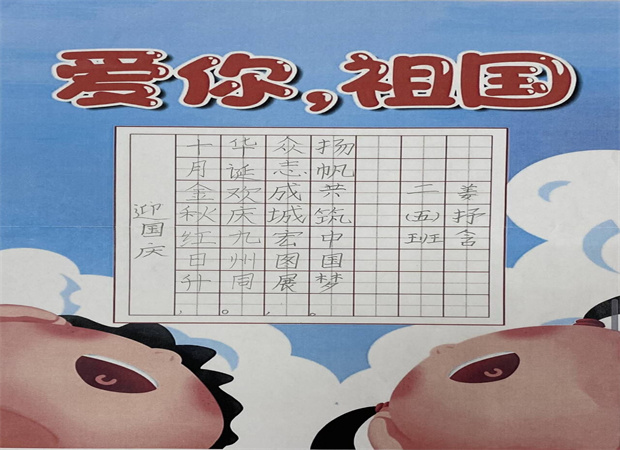 爱你,祖国
迎国庆
十月金秋红日升,
华诞欢庆九州同。
众志成城宏图展,
扬帆共筑中国梦。
二(五)班
姜抒含